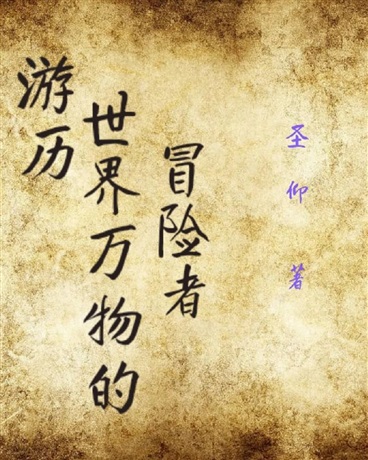 游历
世界万物的
冒险者
圣仰 著